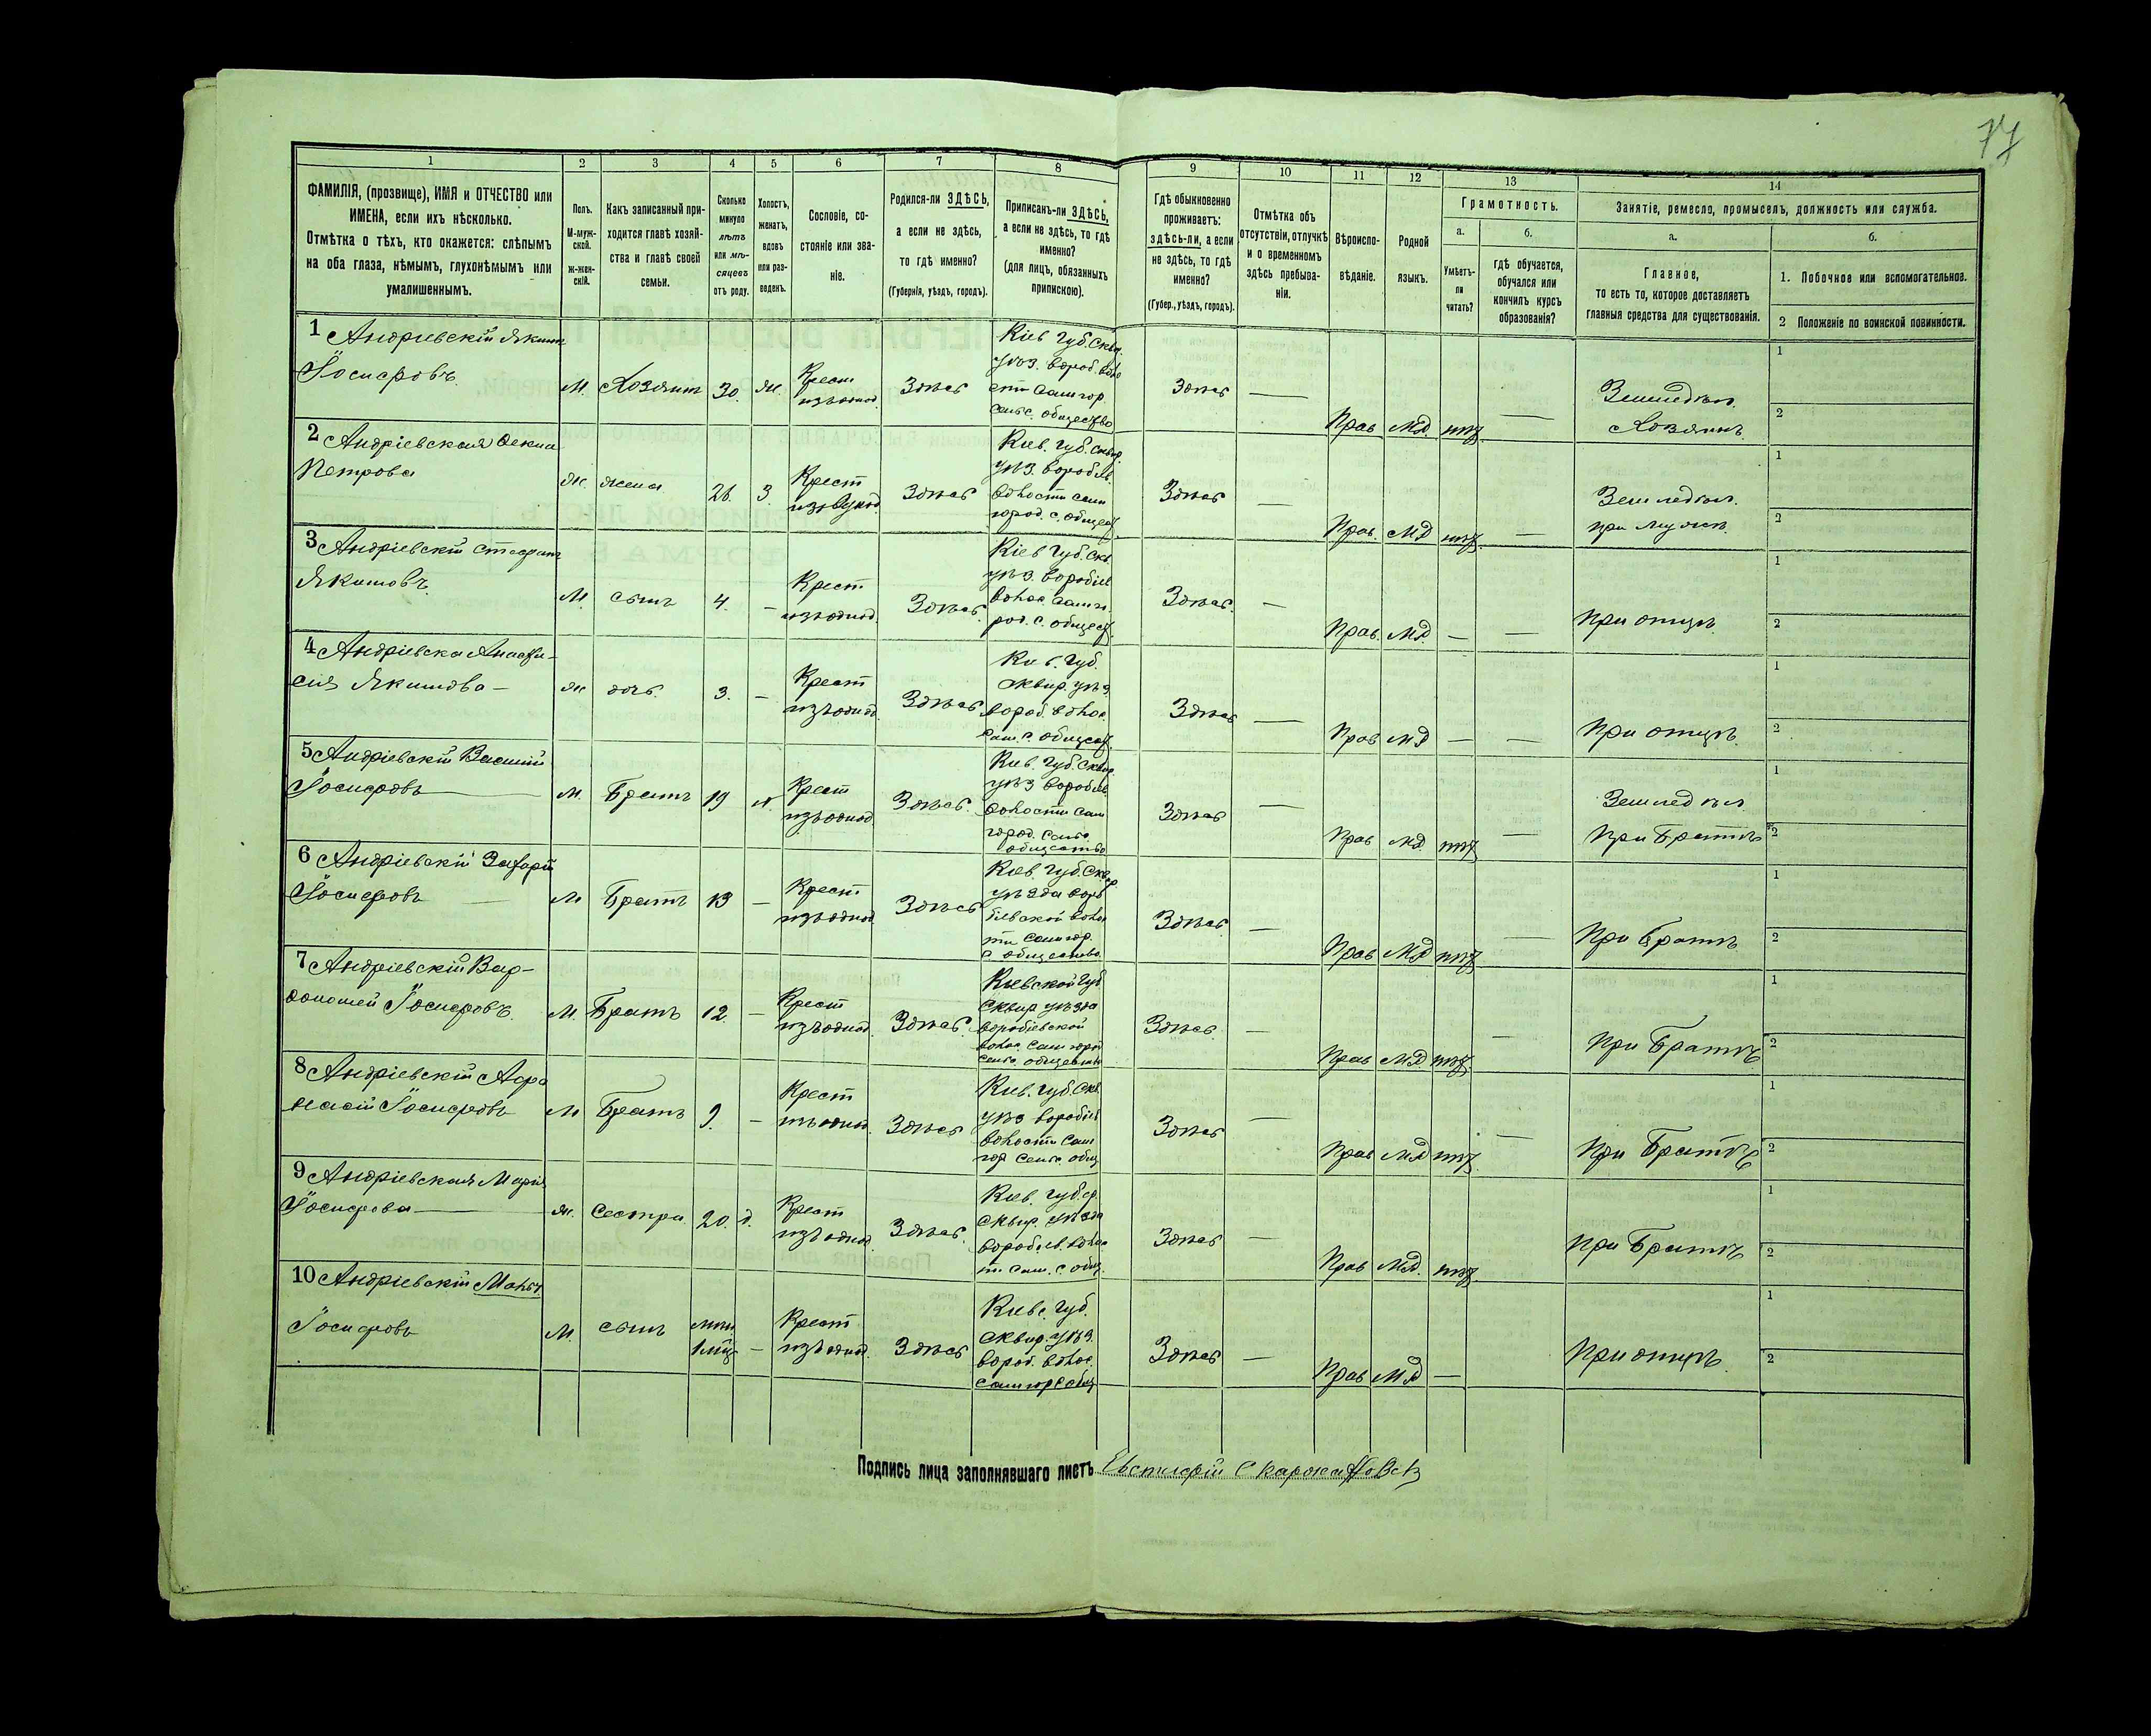 77
1 2 3 4 5 6 7 8 9 10 11 12 13 14
ФАМИЛІЯ, (прозвище), ИМЯ и ОТЧЕСТВО или
ИМЕНА, если ихъ нѣсколько.
Отмѣтка о тѣхъ, кто окажется: слѣпымъ
на оба глаза, нѣмымъ, глухонѣмымъ или
умалишеннымъ.
Полъ.
М-муж-
ской.
ж-жен-
скій.
Какъ записанный при-
ходится главѣ хозяй-
ства и главѣ своей
семьи.
Сколько
минуло
лѣтъ
или мѣ-
сяцевъ
отъ роду.
Холостъ,
женатъ,
вдовъ
или раз-
веденъ.
Сословіе, со-
стояніе или зва-
ніе.
Родился-ли ЗДѢСЬ,
а если не здѣсь,
то гдѣ именно?
(Губернія, уѣздъ, городъ).
Приписанъ-ли ЗДѢСЬ,
а если не здѣсь, то гдѣ
именно?
(для лицъ, обязанныхъ
припискою).
Гдѣ обыкновенно
проживаетъ:
здѣсь-ли, а если
не здѣсь, то гдѣ
именно?
(Губер., уѣздъ, городъ).
Отмѣтка объ
отсутствіи, отлучкѣ
и о временномъ
здѣсь пребыва-
ніи.
Вѣроиспо-
вѣданіе.
Родной
языкъ.
Грамотность.
а.
Умѣетъ-
ли
читать?
б.
гдѣ обучается,
обучался или
кончилъ курсъ
образованія?
Занятіе, ремесло, промыселъ, должность или служба.
а.
Главное,
то есть то, которое доставляетъ
главныя средства для существованія.
б.
1. Побочное или вспомогательное.
2 Положеніе по воинской повинности.
1 Андріевскій Якимъ
Іосифовъ
М. Хозяинъ 30. Ж. Крест
изъ однод. Здѣсь
Кіев Губ. Сквир.
уѣз. вороб. воло
сти Самгор.
сельс. общество
Здѣсь — Прав М.Р. нѣт — Земледѣл.
Хозяинъ
1
2
2 Андріевская Фекла
Петрова
Ж. жена 26. З. Крест
изъ однод. Здѣсь
Кіев. Губ. Сквир.
уѣз. воробіев.
волости Сам
город. с. общест.
Здѣсь — Прав. М.Р нѣт — Земледѣл.
при мужѣ
1
2
3 Андріевскій Стефанъ
Якимовъ
М. сынъ 4. — Крест
изъ однод. Здѣсь.
Кіев Губ. Скв.
уѣз. воробіев
волос. Самго
род. с. общест.
Здѣсь. — Прав. М.Р. — — При отцѣ.
1
2
4 Андріевска Анаста-
сія Якимова —
Ж дочь. 3. — Крест
изъ однод. Здѣсь
Кіев. Губ.
Сквир. уѣз.
вороб. волос.
Сам. с. общест.
Здѣсь — Прав М Р — — При отцѣ.
1
2
5 Андріевскій Василій
Іосифовъ —
М. Братъ 19 х. Крест
изъ однод. Здѣсь.
Кіев. Губ. Сквир.
уѣз воробіев
волости Сам
город. сельс.
общество
Здѣсь — Прав М.Р. нѣт — Земледѣл
При Братѣ
1
2
6 Андріевскій Захарій
Іосифовъ —
М Братъ 13 — Крест
изъ однод. Здѣсь
Кіев. Губ. Сквир
уѣзда воро
біевской волос
ти Самгор.
с. общество.
Здѣсь. — Прав М.Р нѣт — При Братѣ
1
2
7 Андріевскій Вар-
фоломей Іосифовъ.
М. Братъ 12. — Крест
изъ однод. Здѣсь.
Кіевской Губ
Сквир уѣзда
воробіевской
волос. Самгор
сельс. общество
Здѣсь. — Прав М.Р нѣт. — При Братѣ
1
2
8 Андріевскій Афа
насій Іосифовъ
М Братъ 9. — Крест
изъ однод. Здѣсь
Кіев. Губ. Скв.
уѣз воробіев
волости Сам
гор сельс. общ
Здѣсь — Прав М.Р нѣт. — При Братѣ
1
2
9 Андріевская Марія
Іосифова —
Ж. Сестра 20. д. Крест
изъ однод. Здѣсь.
Кіев. Губ.
Сквир. уѣзда
воробіев. волос
ти Сам. с. общ.
Здѣсь — Прав М.Р. нѣт При Братѣ
1
2
10 Андріевскій
Іосифовъ
М. сынъ
1 мѣс — Крест
изъ однод. Здѣсь
Кіевс. Губ.
Сквир. уѣз.
вороб. волос.
Самгор с общ
Здѣсь — Прав М Р — При отцѣ.
1
2
Подпись лица заполнявшаго листъ Евстафій